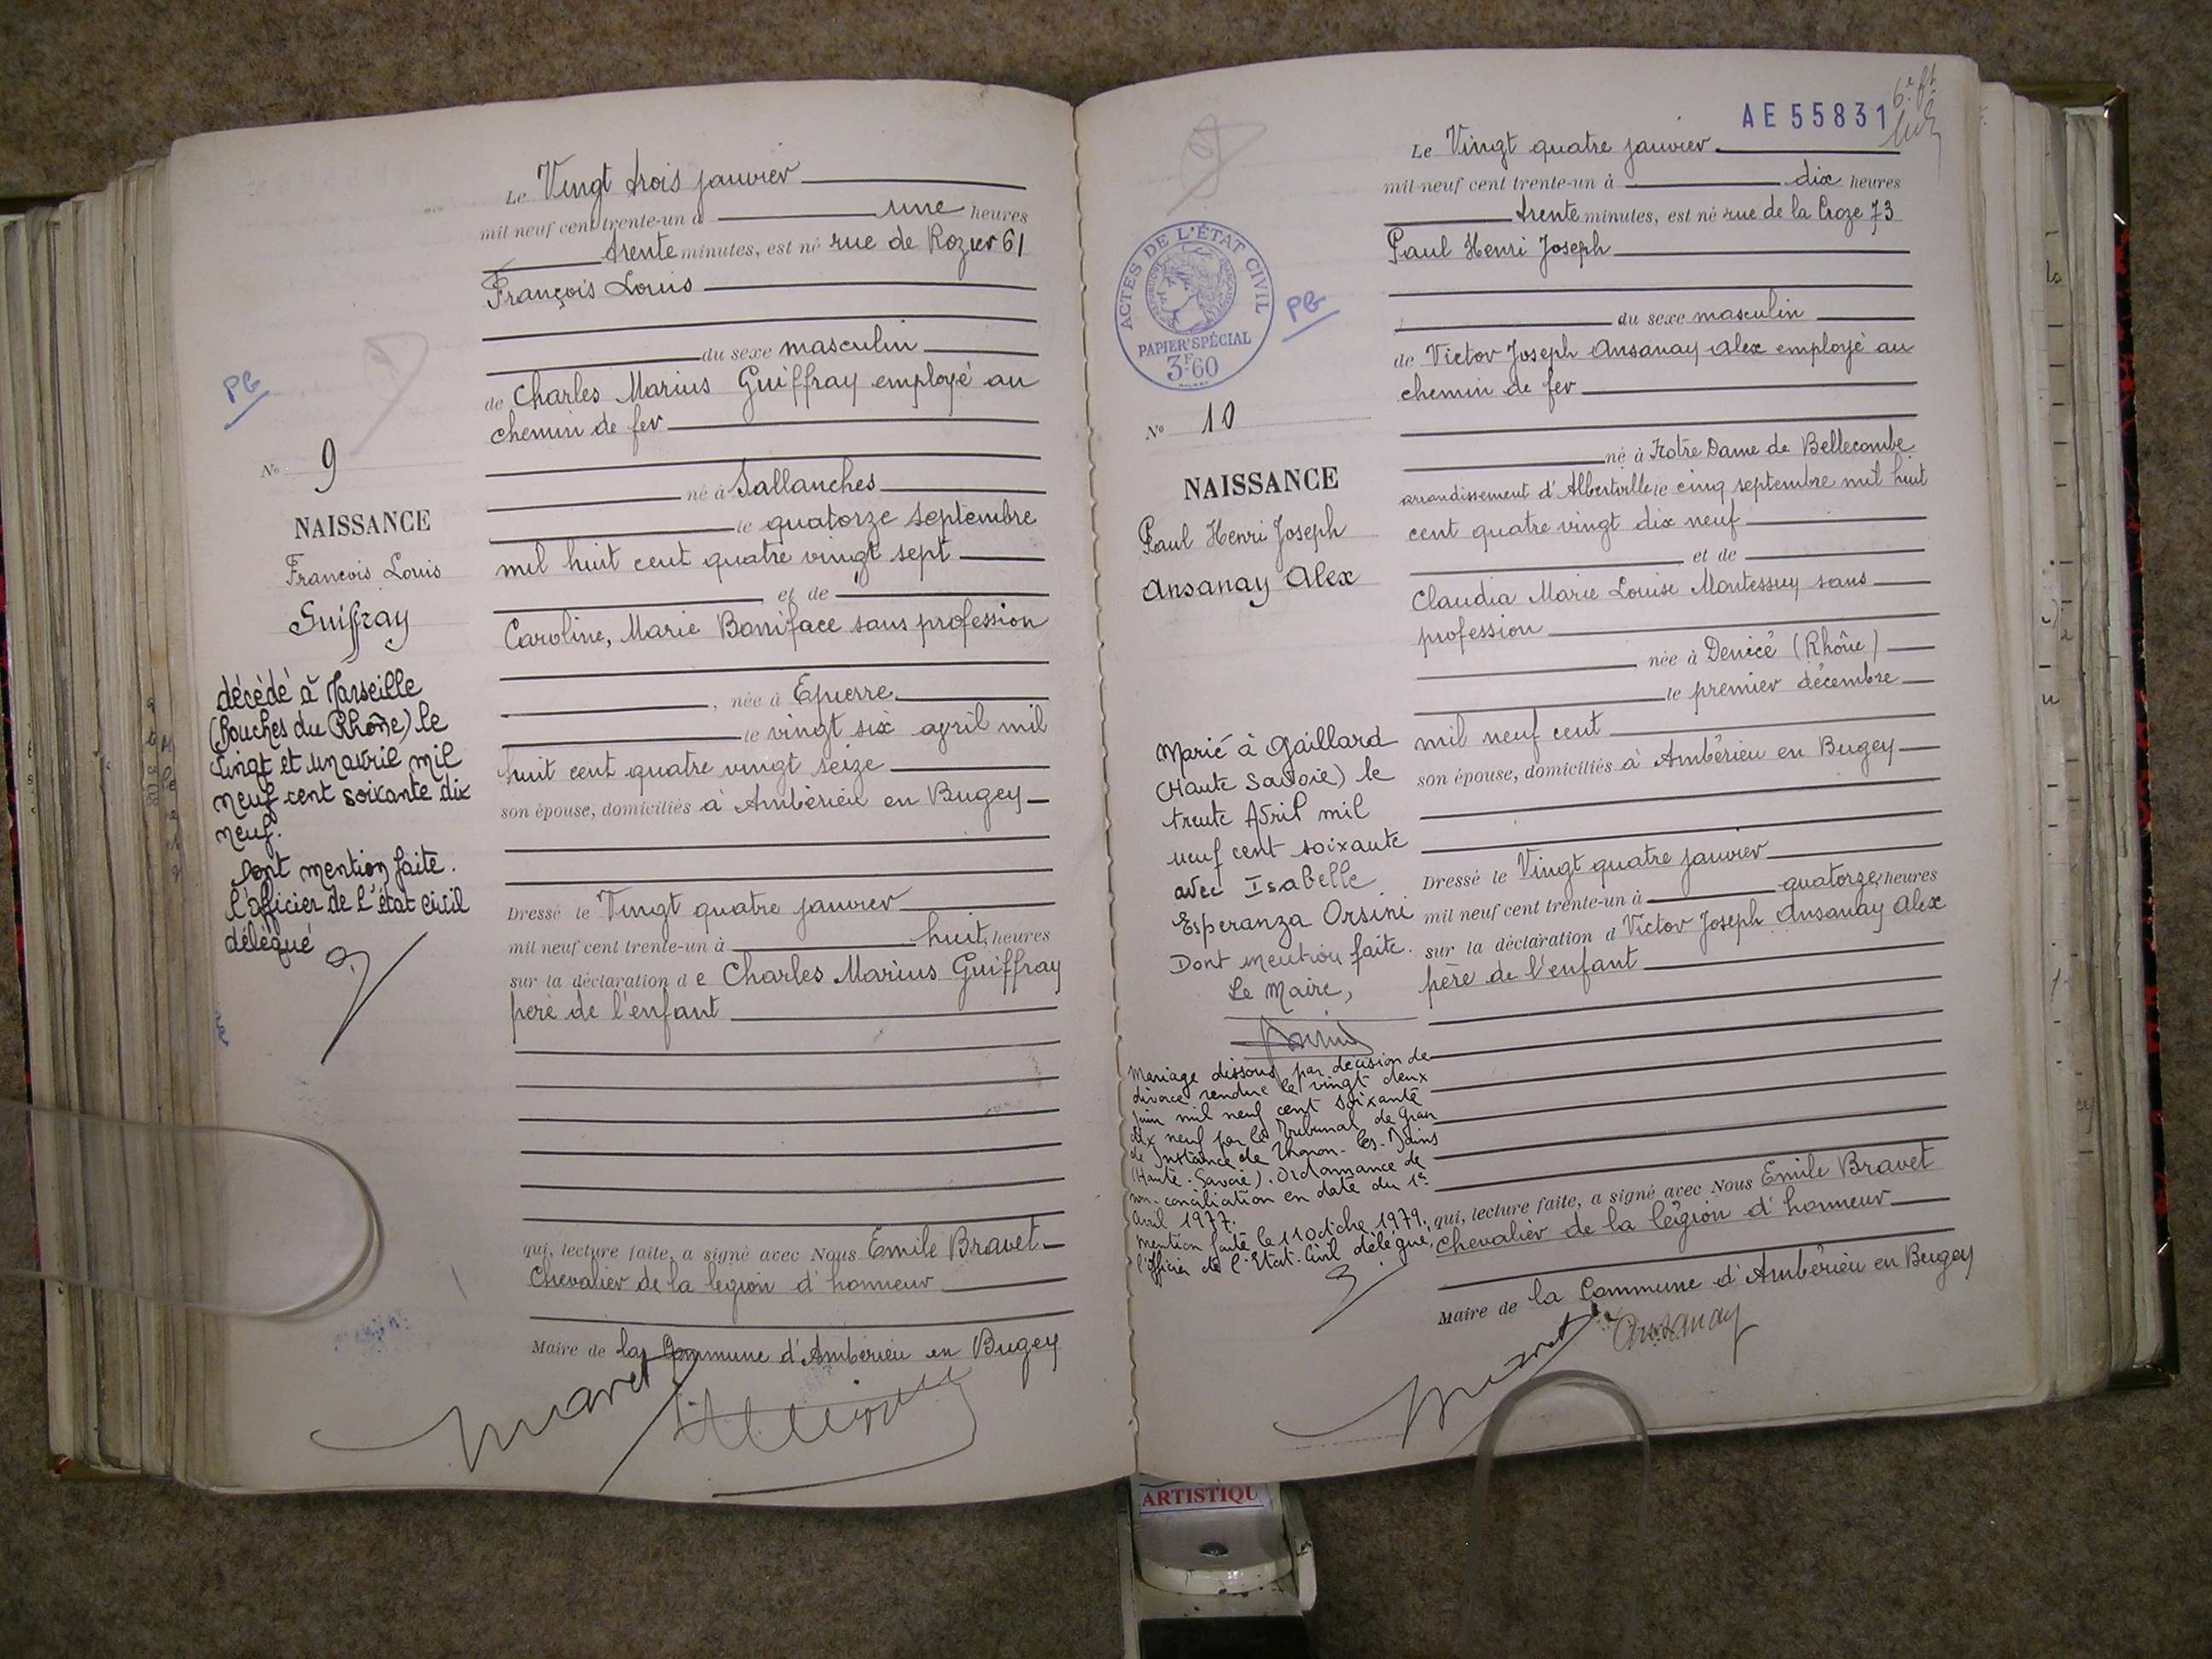 Le Vingt trois janvier
mil neuf cent trente-un à une heures
trente minutes, est né rue de Rozier 61
François Louis
du sexe masculin
de Charles Marius Guiffray employé au
chemin de fer
né à Sallanches
le quatorze septembre
mil huit cent quatre vingt sept
et de
Caroline, Marie Boniface sans profession
, née à Epierre
le vingt six avril mil
huit cent quatre vingt seize
son épouse, domiciliés à Ambérieu en Bugey
Dressé le Vingt quatre janvier
mil neuf cent trente-un à huit heures
sur la déclaration de Charles Marius Guiffray
père de l'enfant
qui, lecture faite, a signé avec Nous Emile Bravet
Chevalier de la légion d'honneur
Maire de la Commune d'Ambérieu en Bugey
PG
No 9
NAISSANCE
François Louis
Guiffray
décédé à Marseille
(Bouches du Rhône) le
vingt et un avril mil
neuf cent soixante dix
neuf.
Dont mention faite.
l'officier de l'état civil
délégué
AE 55831
Le Vingt quatre janvier
mil neuf cent trente-un à dix heures
trente minutes, est né rue de la Croze 73
Paul Henri Joseph
du sexe masculin
de Victor Joseph Ansanay Alex employé au
chemin de fer
né à Notre Dame de Bellecombe
arrondissement d'Albertville le cinq septembre mil huit
cent quatre vingt dix neuf
et de
Claudia Marie Louise Montessuy sans
profession
née à Denicé (Rhône)
le premier décembre
mil neuf cent
son épouse, domiciliés à Ambérieu en Bugey
Dressé le Vingt quatre janvier
mil neuf cent trente-un à quatorze heures
sur la déclaration d Victor Joseph Ansanay Alex
père de l'enfant
qui, lecture faite, a signé avec Nous Emile Bravet
Chevalier de la légion d'honneur
Maire de la Commune d'Ambérieu en Bugey
Ansanay
ACTES DE L'ÉTAT CIVIL
PAPIER SPÉCIAL
3F60
PG
No 10
NAISSANCE
Paul Henri Joseph
Ansanay Alex
Marié à Gaillard
(Haute Savoie) le
trente Avril mil
neuf cent soixante
avec Isabelle
Esperanza Orsini
Dont mention faite.
Le Maire,
Mariage dissous par décision de
divorce rendue le vingt deux
juin mil neuf cent soixante
dix neuf par le Tribunal de Gran
de Instance de Thonon-les-Bains
(Haute-Savoie). Ordonnance de
non-conciliation en date du 1er
avril 1977.
Mention faite le 11 octobre 1979.
l'officier de l'Etat-Civil délégué,
ARTISTIQU